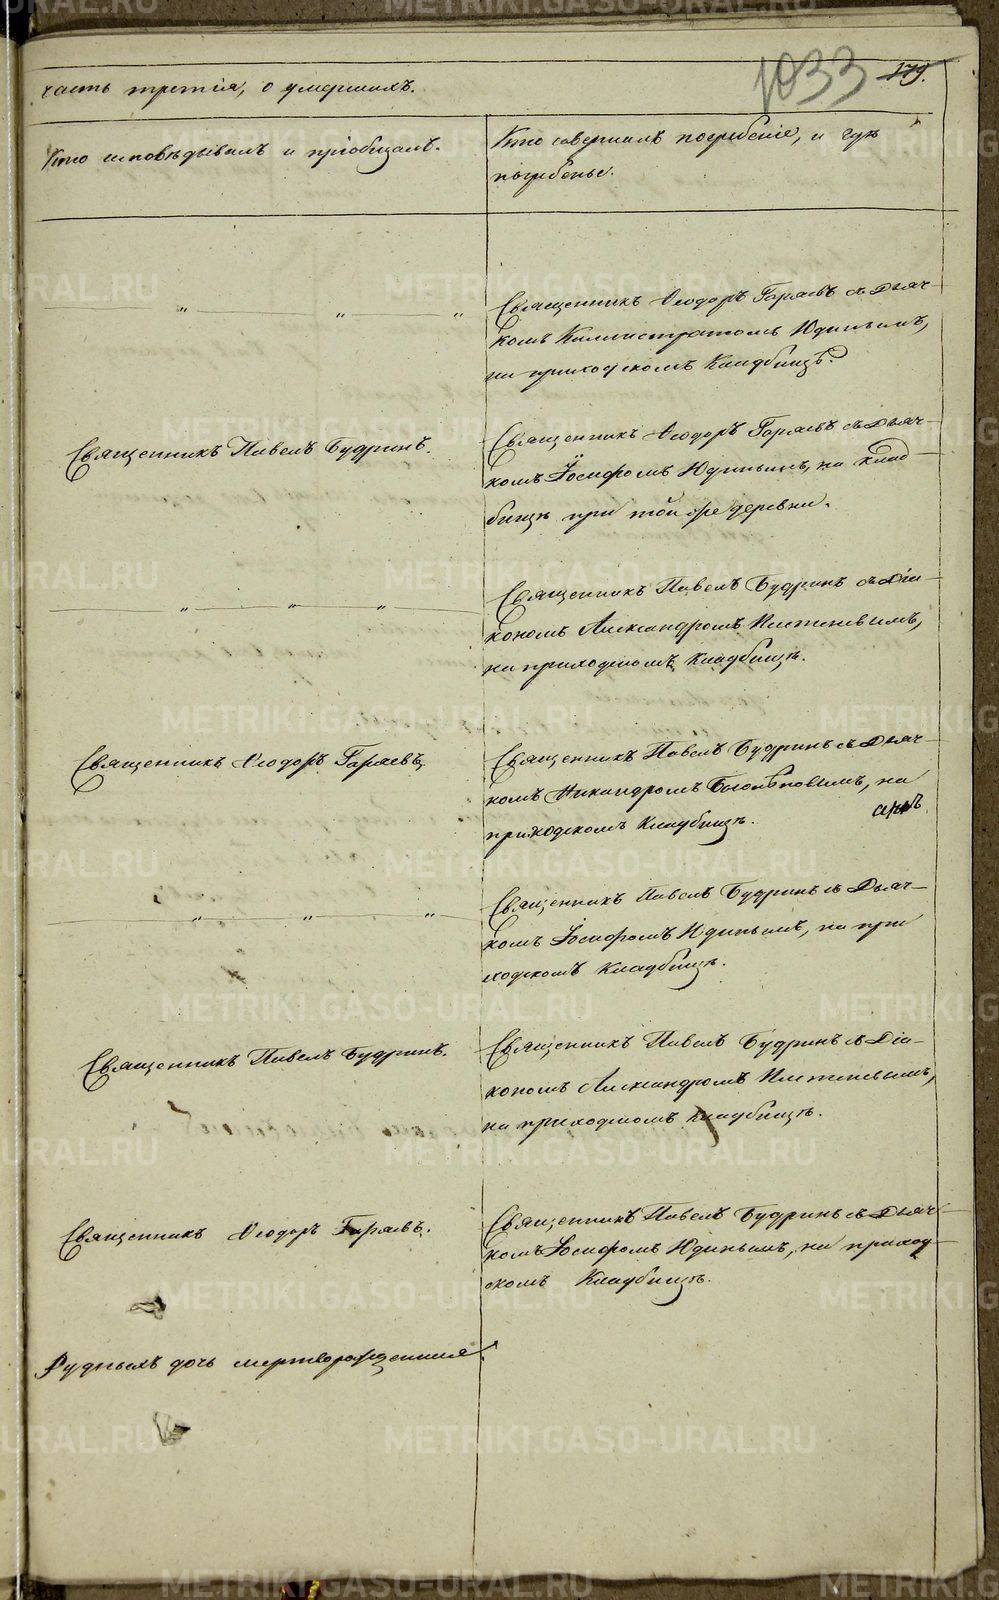 1033 179.
часть третія, о умершихъ.
Кто исповѣдывалъ и пріобщалъ.
Кто совершилъ погребеніе, и гдѣ
погребены.
" " "
Священникъ Ѳеодоръ Гаряевъ съ Дьяч-
комъ Каллистратомъ Юдинымъ,
на приходскомъ Кладбищѣ.
Священникъ Павелъ Будринъ.
Священникъ Ѳеодоръ Гаряевъ съ Дьяч-
комъ Іосифомъ Юдинымъ, на клад-
бищѣ при той же деревни.
" " "
Священникъ Павелъ Будринъ съ Діа-
кономъ Александромъ
на приходскомъ кладбищѣ.
Священникъ Ѳеодоръ Гаряевъ.
Священникъ Павелъ Будринъ съ Дьяч-
комъ Никандромъ на
приходскомъ Кладбищѣ.
" " "
Священникъ Павелъ Будринъ съ Дьяч-
комъ Іосифомъ Юдинымъ, на при
ходскомъ Кладбищѣ.
Священникъ Павелъ Будринъ.
Священникъ Павелъ Будринъ съ Діа-
кономъ Александромъ
на приходскомъ кладбищѣ.
Священникъ Ѳеодоръ Гаряевъ.
Священникъ Павелъ Будринъ съ Дьяч-
комъ Іосифомъ Юдинымъ, на приход-
скомъ Кладбищѣ.
Рудныхъ дочь мертворожденная.
METRIKI.GASO-URAL.RU